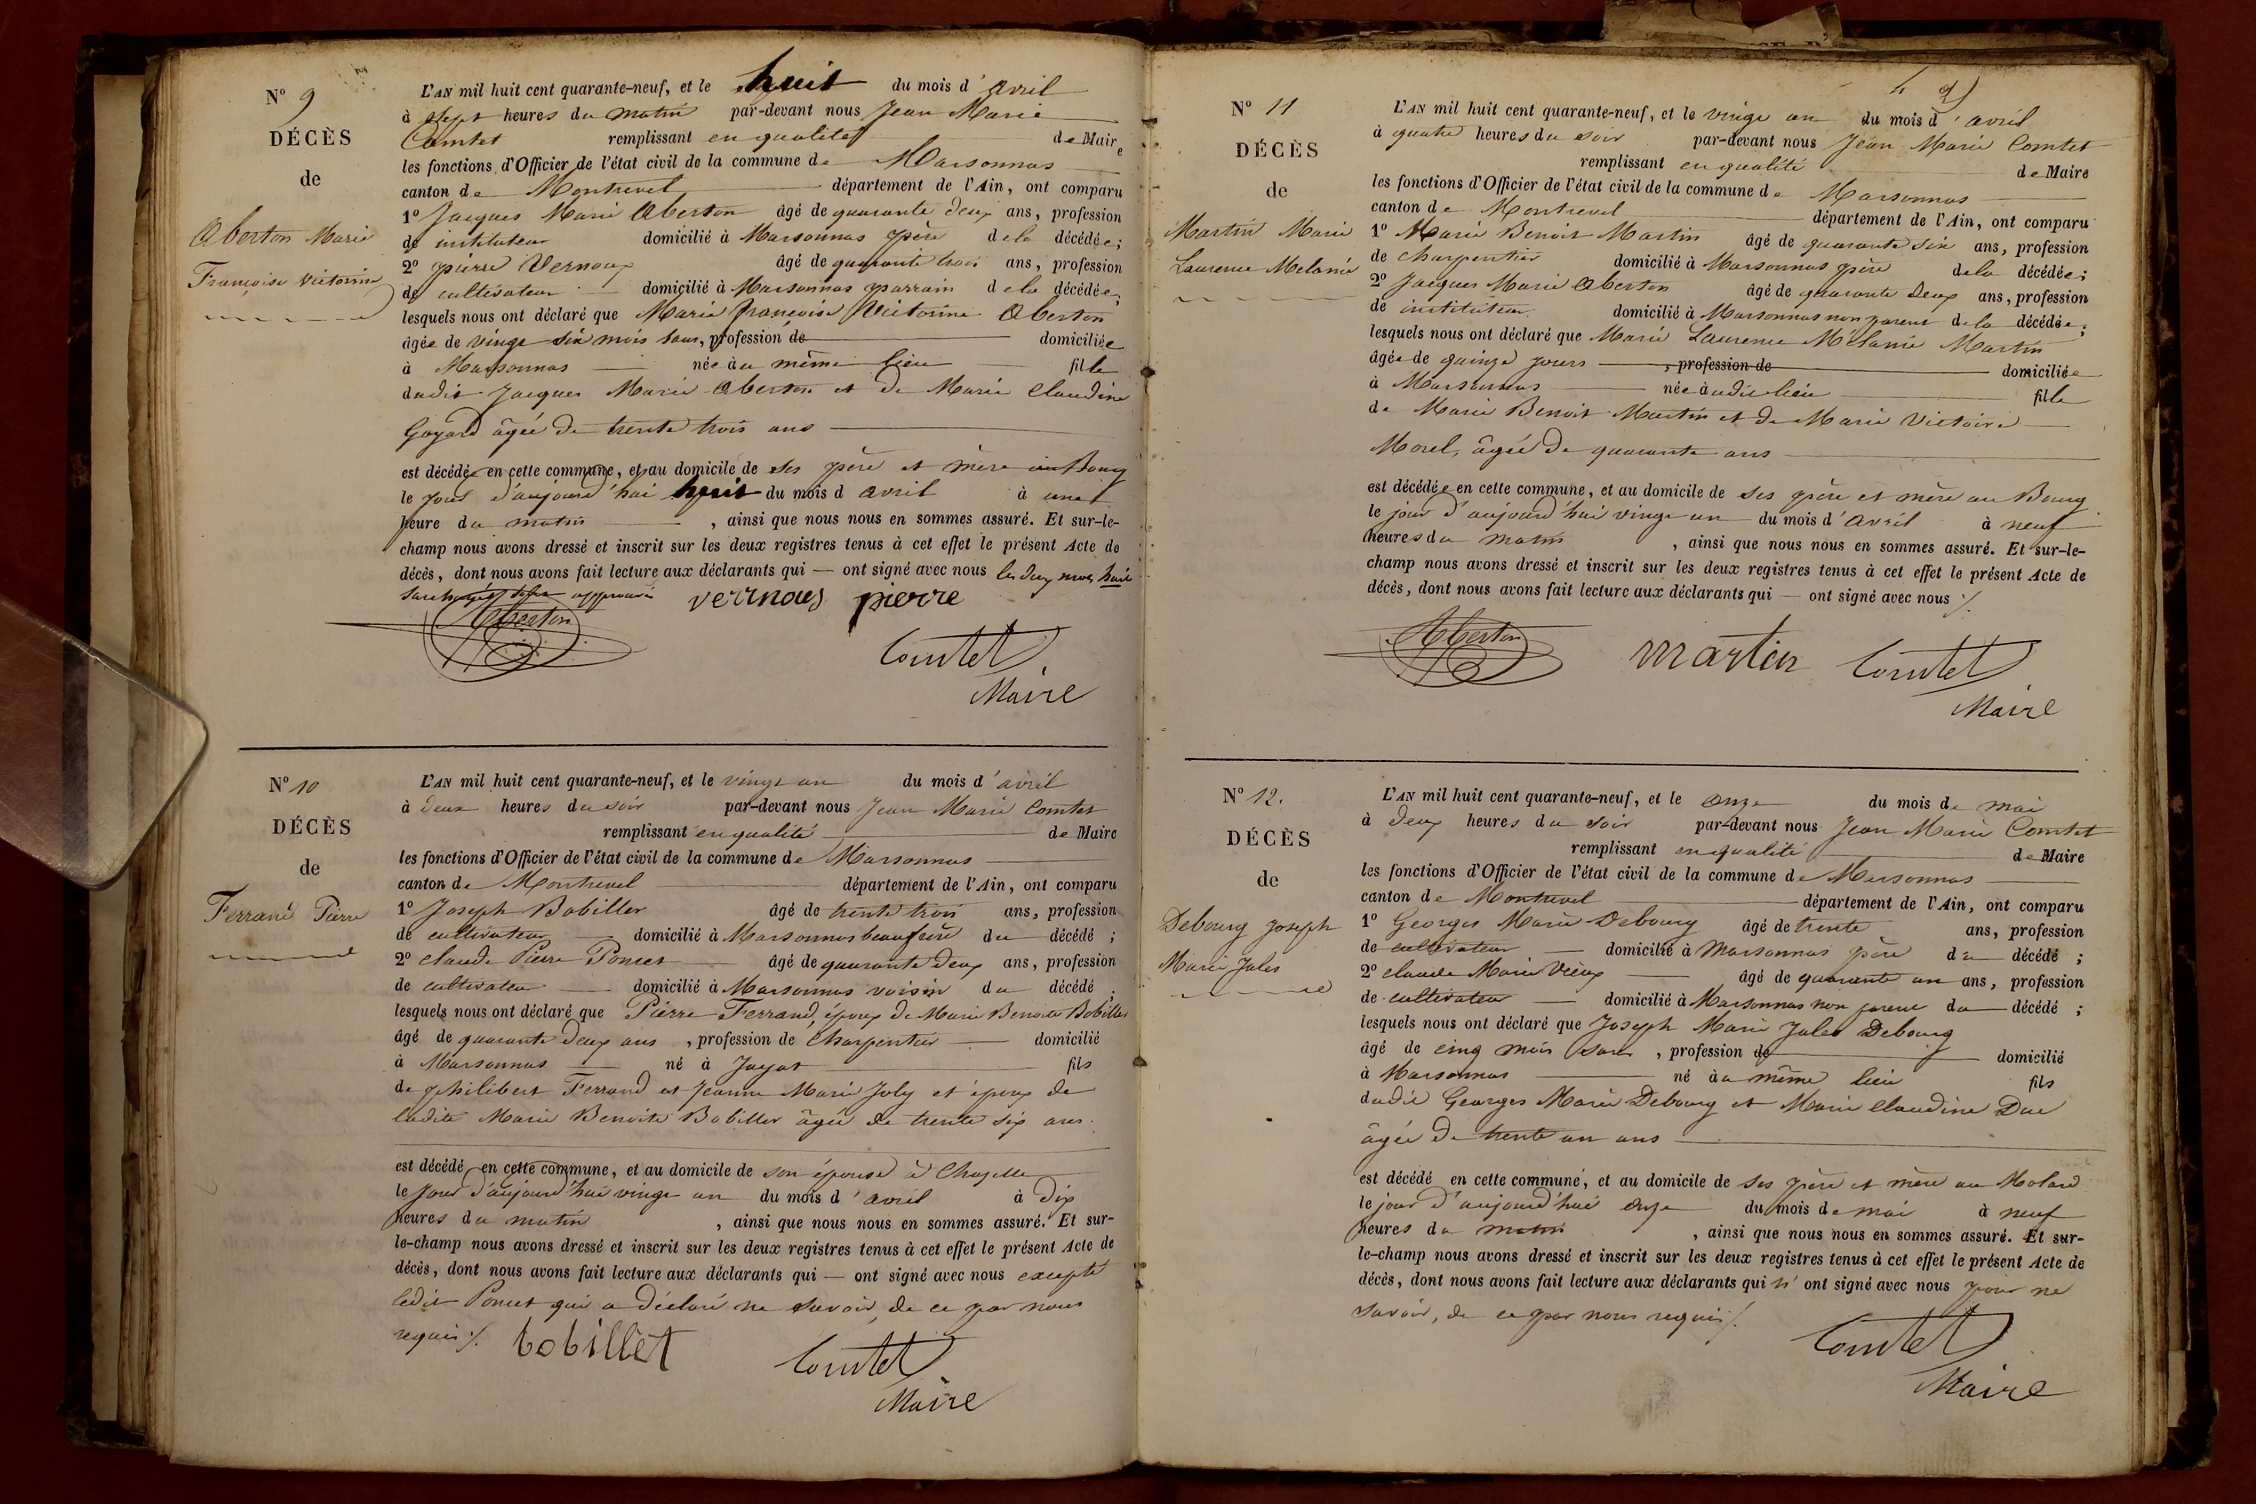 N° 9
DÉCÈS
de
Oberton Marie
Françoise Victorine
L'AN mil huit cent quarante-neuf, et le huit du mois d'avril
à sept heures du matin par-devant nous Jean Marie
Comtet remplissant en qualité de Maire
les fonctions d'Officier de l'état civil de la commune de Marsonnas
canton de Montrevel département de l'Ain, ont comparu
1° Jacques Marie Oberton âgé de quarante deux ans, profession
de instituteur domicilié à Marsonnas père de la décédée;
2° pierre Vernoux âgé de quarante trois ans, profession
de cultivateur domicilié à Marsonnas parrain de la décédée;
lesquels nous ont déclaré que Marie françoise Victorine Oberton
âgée de vingt six mois sans, profession de domiciliée
à Marsonnas née au même lieu fille
dudit Jacques Marie Oberton et de Marie Claudine
Goyard âgée de trente trois ans
est décédée en cette commune, et au domicile de ses père et mère au Bourg
le jour d'aujourd'hui huit du mois d avril à une
heure du matin , ainsi que nous nous en sommes assuré. Et sur-le-
champ nous avons dressé et inscrit sur les deux registres tenus à cet effet le présent Acte de
décès, dont nous avons fait lecture aux déclarants qui — ont signé avec nous les deux mots huit
surchargés approuvés
Oberton vernous pierre
Comtet
Maire
N° 10
DÉCÈS
de
Ferrand Pierre
L'AN mil huit cent quarante-neuf, et le vingt un du mois d'avril
à deux heures du soir par-devant nous Jean Marie Comtet
remplissant en qualité de Maire
les fonctions d'Officier de l'état civil de la commune de Marsonnas
canton de Montrevel département de l'Ain, ont comparu
1° Joseph Bobillet âgé de trente trois ans, profession
de cultivateur domicilié à Marsonnas beaufrère du décédé ;
2° claude Pierre Poncet âgé de quarante deux ans, profession
de cultivateur domicilié à Marsonnas voisin du décédé ;
lesquels nous ont déclaré que Pierre Ferrand, époux de Marie Benoite Bobillet
âgé de quarante deux ans , profession de Charpentier domicilié
à Marsonnas né à Jayat fils
de philibert Ferrand et Jeanne Marie Joly et époux de
ladite Marie Benoite Bobillet âgée de trente six ans.
est décédé en cette commune, et au domicile de son épouse à Chazelle
le jour d'aujourd'hui vingt un du mois d'avril à dix
heures du matin , ainsi que nous nous en sommes assuré. Et sur-
le-champ nous avons dressé et inscrit sur les deux registres tenus à cet effet le présent Acte de
décès, dont nous avons fait lecture aux déclarants qui — ont signé avec nous excepté
ledit Poncet qui a déclaré ne savoir, de ce par nous
requis ./.
bobillet Comtet
Maire
49
N° 11
DÉCÈS
de
Martin Marie
Laurence Melanie
L'AN mil huit cent quarante-neuf, et le vingt un du mois d'avril
à quatre heures du soir par-devant nous Jean Marie Comtet
remplissant en qualité de Maire
les fonctions d'Officier de l'état civil de la commune de Marsonnas
canton de Montrevel département de l'Ain, ont comparu
1° Marie Benoit Martin âgé de quarante six ans, profession
de charpentier domicilié à Marsonnas père de la décédée;
2° Jacques Marie Oberton âgé de quarante deux ans, profession
de instituteur domicilié à Marsonnas non parent de la décédée;
lesquels nous ont déclaré que Marie Laurence Melanie Martin
âgée de quinze jours , profession de domiciliée
à Marsonnas née audit lieu fille
de Marie Benoit Martin et de Marie Victoire
Morel, âgée de quarante ans
est décédée en cette commune, et au domicile de ses père et mère au Bourg
le jour d'aujourd'hui vingt un du mois d'avril à neuf
heures du matin , ainsi que nous nous en sommes assuré. Et sur-le-
champ nous avons dressé et inscrit sur les deux registres tenus à cet effet le présent Acte de
décès, dont nous avons fait lecture aux déclarants qui — ont signé avec nous ./.
Oberton martin Comtet
Maire
N° 12.
DÉCÈS
de
Debourg Joseph
Marie Jules
L'AN mil huit cent quarante-neuf, et le onze du mois de mai
à deux heures du soir par-devant nous Jean Marie Comtet
remplissant en qualité de Maire
les fonctions d'Officier de l'état civil de la commune de Marsonnas
canton de Montrevel département de l'Ain, ont comparu
1° Georges Marie Debourg âgé de trente ans, profession
de cultivateur domicilié à Marsonnas père du décédé ;
2° claude Marie Vieux âgé de quarante un ans, profession
de cultivateur domicilié à Marsonnas non parent du décédé ;
lesquels nous ont déclaré que Joseph Marie Jules Debourg
âgé de cinq mois sans , profession de domicilié
à Marsonnas né au même lieu fils
dudit Georges Marie Debourg et Marie Claudine Duc
âgée de trente un ans
est décédé en cette commune, et au domicile de ses père et mère au Molard
le jour d'aujourd'hui onze du mois de mai à neuf
heures du matin , ainsi que nous nous en sommes assuré. Et sur-
le-champ nous avons dressé et inscrit sur les deux registres tenus à cet effet le présent Acte de
décès, dont nous avons fait lecture aux déclarants qui n'ont signé avec nous pour ne
savoir, de ce par nous requis ./.
Comtet
Maire